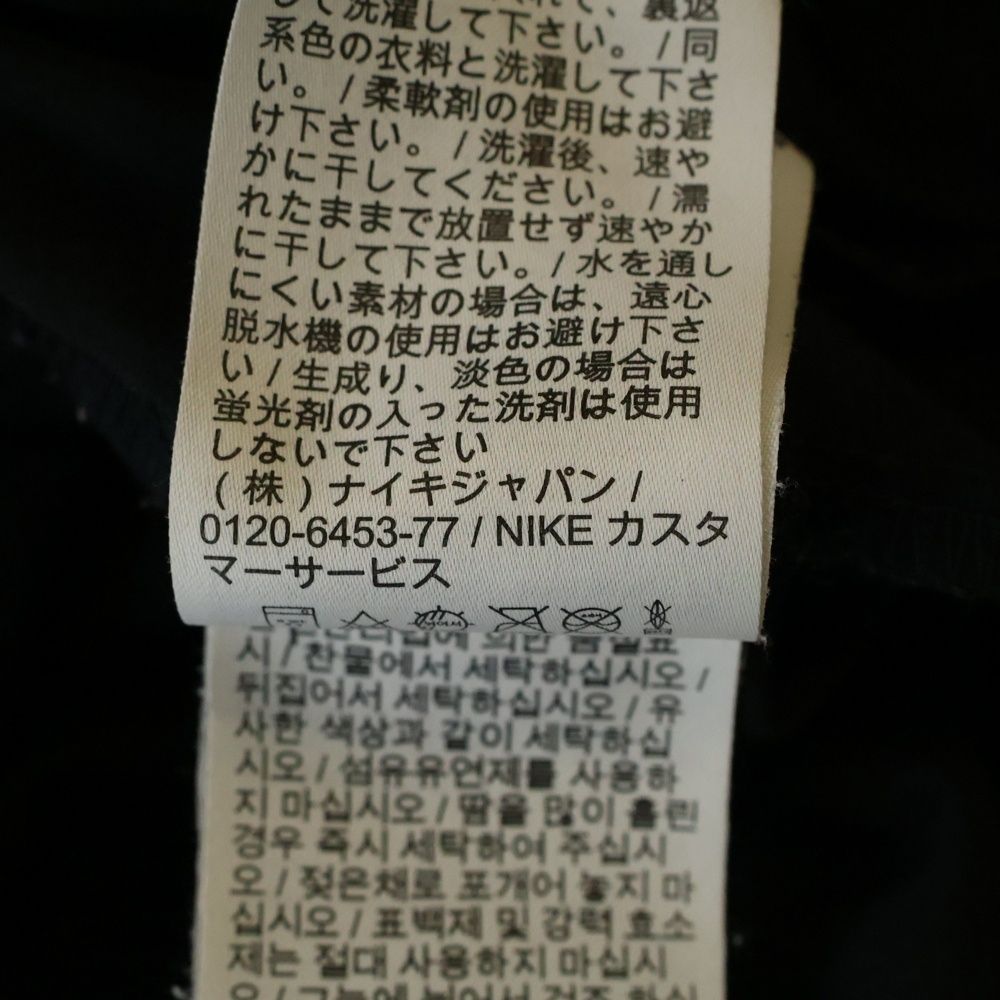 て洗濯して下さい。/同
系色の衣料と洗濯して下さ
い。/柔軟剤の使用はお避
け下さい。/洗濯後、速や
かに干してください。/濡
れたままで放置せず速やか
に干して下さい。/水を通し
にくい素材の場合は、遠心
脱水機の使用はお避け下さ
い/生成り、淡色の場合は
蛍光剤の入った洗剤は使用
しないで下さい
(株)ナイキジャパン/
0120-6453-77/NIKEカスタ
マーサービス
시/찬물에서 세탁하십시오/
뒤집어서 세탁하십시오/유
사한 색상과 같이 세탁하십
시오/섬유유연제를 사용하
지 마십시오/땀을 많이 흘린
경우 즉시 세탁하여 주십시
오/젖은채로 포개어 놓지 마
십시오/표백제 및 강력 효소
제는 절대 사용하지 마십시